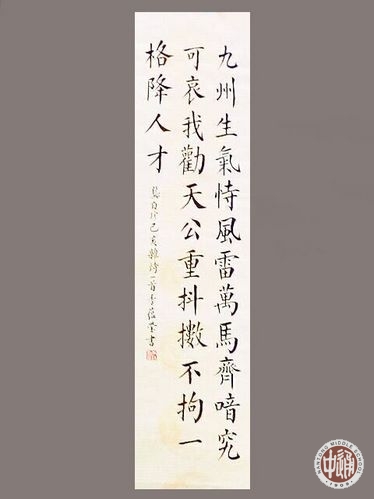 九州生氣恃風雷萬馬齊喑究
可哀我勸天公重抖擻不拘一
格降人才
龔自珍己亥雜詩一首書
NANTONG MIDDLE SCHOOL
1909